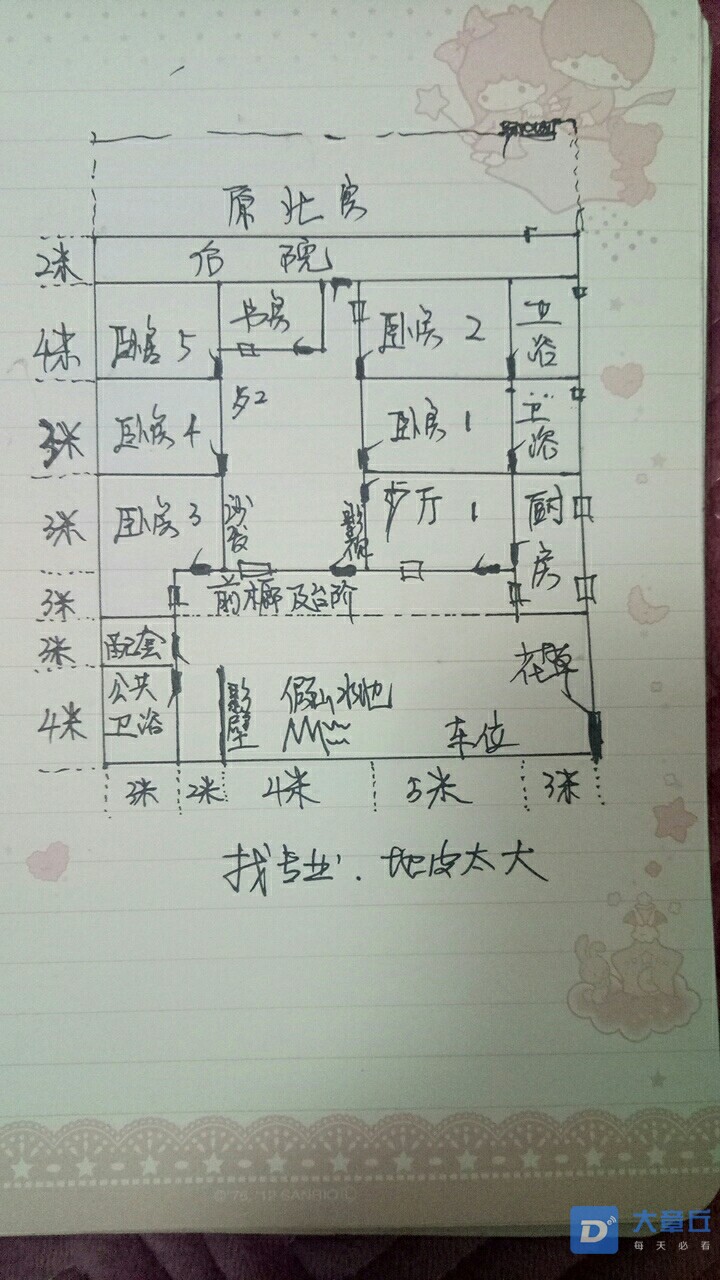 原北房
2米
后院
4米
卧房5
书房
卧房2
卫浴
3米
卧房4
卧房1
卫浴
3米
卧房3
沙发
影视
步厅1
厨房
3米
前廊及台阶
3米
配套
花草
4米
公共卫浴
影壁
假山水池
车位
3米 2米 4米 5米 3米
找专业、地皮太大
©'76, '12 SANRIO
大章丘
每天必看